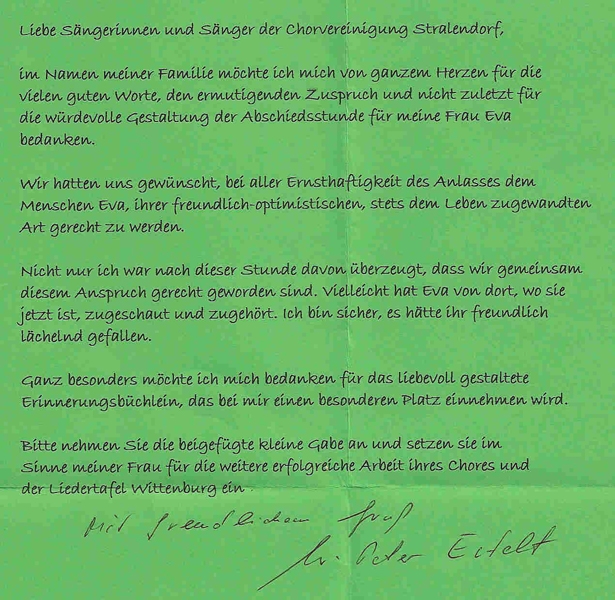 Liebe Sängerinnen und Sänger der Chorvereinigung Stralendorf,
im Namen meiner Familie möchte ich mich von ganzem Herzen für die
vielen guten Worte, den ermutigenden Zuspruch und nicht zuletzt für
die würdevolle Gestaltung der Abschiedsstunde für meine Frau Eva
bedanken.
Wir hatten uns gewünscht, bei aller Ernsthaftigkeit des Anlasses dem
Menschen Eva, ihrer freundlich-optimistischen, stets dem Leben zugewandten
Art gerecht zu werden.
Nicht nur ich war nach dieser Stunde davon überzeugt, dass wir gemeinsam
diesem Anspruch gerecht geworden sind. Vielleicht hat Eva von dort, wo sie
jetzt ist, zugeschaut und zugehört. Ich bin sicher, es hätte ihr freundlich
lächelnd gefallen.
Ganz besonders möchte ich mich bedanken für das liebevoll gestaltete
Erinnerungsbüchlein, das bei mir einen besonderen Platz einnehmen wird.
Bitte nehmen Sie die beigefügte kleine Gabe an und setzen sie im
Sinne meiner Frau für die weitere erfolgreiche Arbeit ihres Chores und
der Liedertafel Wittenburg ein
Mit freundlichem Gruß
Peter